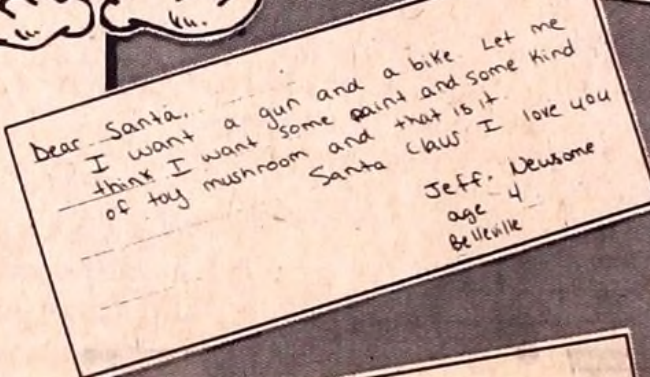 Dear Santa,
I want a gun and a bike. Let me
think I want some paint and some kind
of toy mushroom and that is it.
Santa Claus I love you
Jeff. Newsome
age 4
Belleville